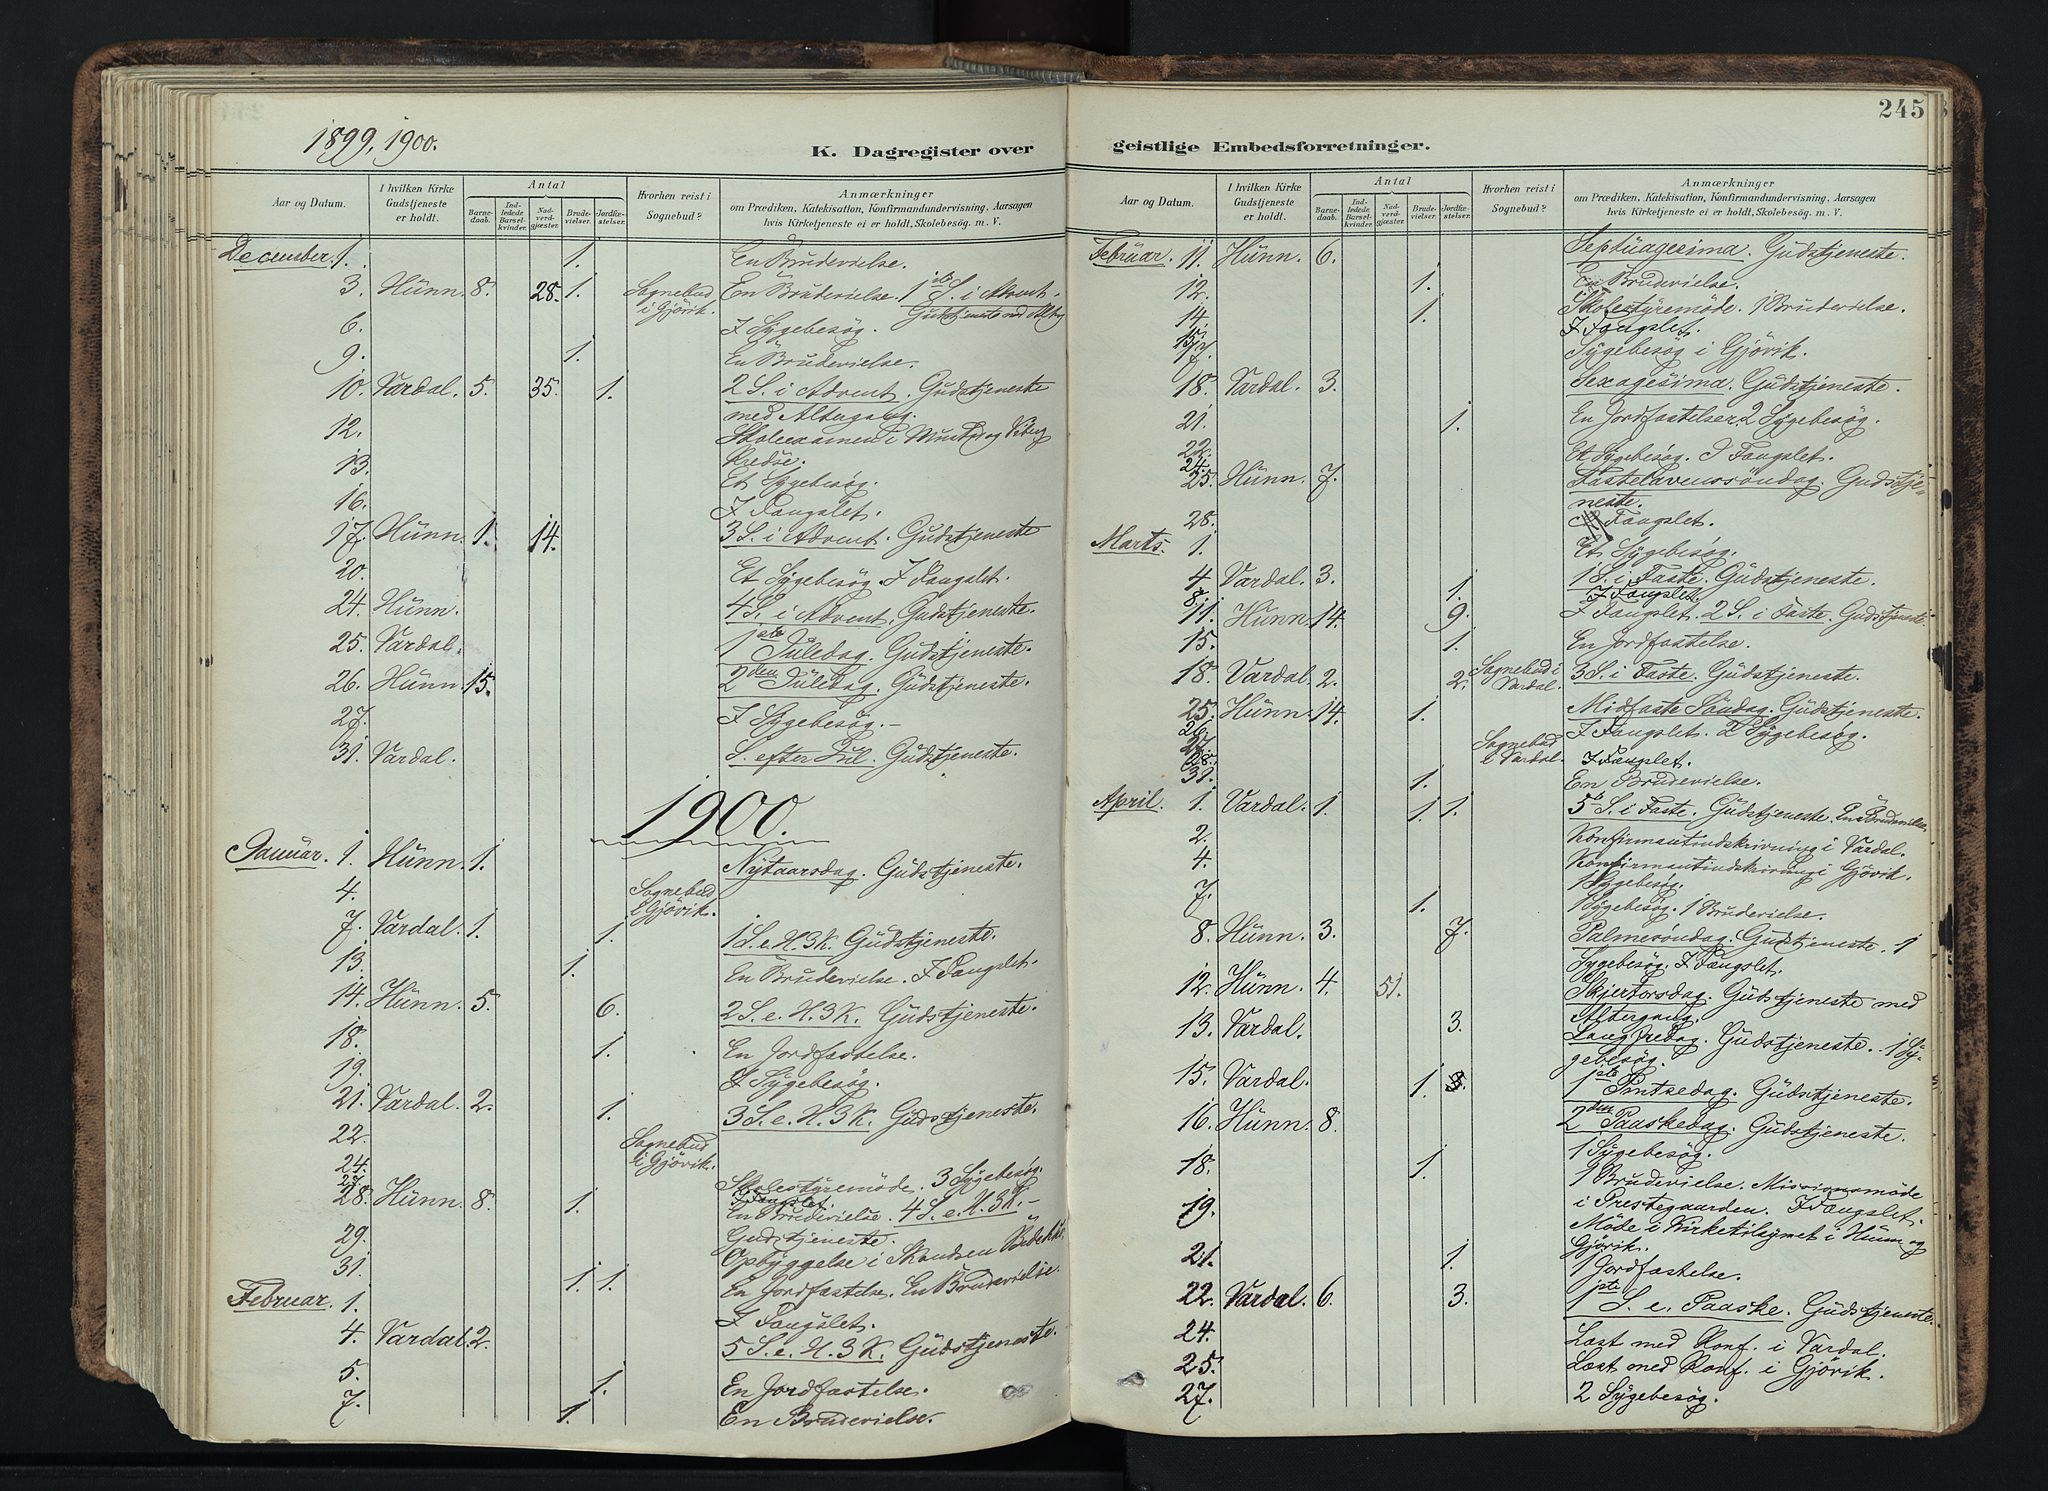 1899, 1900.
K. Dagregister over
Aar og Datum.
I hvilken Kirke Gudstjeneste er holdt.
Antal
Barnedaab.
Indledede Barselkvinder.
Nadverdgjæster.
Brudevielser.
Jordfæstelser.
Hvorhen reist i Sognebud?
Anmærkninger
om Prædiken, Katekisation, Konfirmandundervisning, Aarsagen
hvis Kirketjeneste ei er holdt, Skolebesøg m. V.
December. 1. 1. En Brudevielse.
3. Hunn. 8. 28. 1. Sognebud i Gjövik. En Brudevielse. 1ste S. i Advent.
Gudstjeneste med Altg
6. I Sygebesøg.
9. 1. En Brudevielse.
10. Vardal. 5. 35. 1. 2 S. i Advent. Gudstjeneste
med Altergang.
12. Skoleexamen i
Kredse.
13. Et Sygebesøg.
16. I Fængslet.
17. Hunn. 1. 14. 3 S. i Advent. Gudstjeneste
20. Et Sygebesøg. I Fængslet.
24. Hunn. 4 S. i Advent. Gudstjeneste.
25. Vardal. 1ste Juledag. Gudstjeneste.
26. Hunn. 15. 2den Juledag. Gudstjeneste.
27. I Sygebesøg. –
31. Vardal. S. efter Jul. Gudstjeneste.
1900.
Januar. 1. Hunn. 1. Nytaarsdag. Gudstjeneste.
4. Sognebud i Gjövik.
7. Vardal. 1. 1. 1 S. e. H. 3 K. Gudstjeneste.
13. 1. En Brudevielse. I Fængslet.
14. Hunn. 5. 6. 2 S. e. H. 3 K. Gudstjeneste.
18. 1. En Jordfæstelse.
19. I Sygebesøg.
21. Vardal. 2. 1. 3 S. e. H. 3 K. Gudstjeneste.
22. Sognebud i Gjövik.
24. Skolestyremöde. 3 Sygebesøg.
27. I Fængslet.
28. Hunn. 8. 1. En Brudevielse. 4 S. e. H. 3 K. –
Gudstjeneste.
29. Opbyggelse i Skansen
31. 1. 1. En Jordfæstelse. En Brudevielse.
Februar. 1. I Fængslet.
4. Vardal. 2. 5 S. e. H. 3 K. Gudstjeneste.
5. 1. En Jordfæstelse.
7. 1. En Brudevielse.
245
geistlige Embedsforretninger.
Aar og Datum.
I hvilken Kirke Gudstjeneste er holdt.
Antal
Barnedaab.
Indledede Barselkvinder.
Nadverdgjæster.
Brudevielser.
Jordfæstelser.
Hvorhen reist i Sognebud?
Anmærkninger
om Prædiken, Katekisation, Konfirmandundervisning, Aarsagen
hvis Kirketjeneste ei er holdt, Skolebesøg m. V.
Februar. 11. Hunn. 6. Septuagesima. Gudstjeneste.
12. 1. En Brudevielse.
14. 1. Skolestyremöde. 1 Brudevielse.
15. I Fængslet.
17. Sygebesøg i Gjövik.
18. Vardal. 3. Sexagesima. Gudstjeneste.
21. 1. En Jordfæstelse. 2 Sygebesøg.
22. Et Sygebesøg. I Fængslet.
24.
25. Hunn. 7. Fastelavenssöndag. Gudstjeneste.
28. I Fængslet.
Marts. 1. Et Sygebesøg.
4. Vardal. 3. 1 S. i Faste. Gudstjeneste.
8. 1. I Fængslet.
11. Hunn. 14. 9. I Fængslet. 2 S. i Faste. Gudstjeneste
15. 1. En Jordfæstelse.
18. Vardal. 2. 2. Sognebud i Vardal. 3 S. i Faste. Gudstjeneste.
25. Hunn. 14. 1. Midfaste Söndag. Gudstjeneste.
26. I Fængslet. 2 Sygebesøg.
27. Sognebud i Vardal.
28. I Fængslet.
31. 1. En Brudevielse.
April. 1. Vardal. 1. 1. 1. 5te S. i Faste. Gudstjeneste. En Brudevielse.
2. Konfirmantindskrivning i Vardal.
4. Konfirmantindskrivning i Gjövik.
1 Sygebesøg.
7. 1. 1 Sygebesøg. 1 Brudevielse.
8. Hunn. 3. 7. Palmesöndag. Gudstjeneste. 1
Sygebesøg. I Fængslet.
12. Hunn. 4. 51. Skjertorsdag. Gudstjeneste med
Altergang.
13. Vardal. 3. Langfredag. Gudstjeneste. 1 Sy-
gebesøg.
15. Vardal. 1. 1ste Gudstjeneste.
16. Hunn. 8. 2den Paaskedag. Gudstjeneste.
1 Sygebesøg.
18. 1. 1 Brudevielse. Missionsmöde
i Prestegaarden. I Fængslet.
19. Möde i Kirketilsynet i Hunn og
Gjövik.
21. 1. 1 Jordfæstelse.
22. Vardal. 6. 3. 1ste S. e. Paaske. Gudstjeneste.
24. Læst med Konf. i Vardal.
25. Læst med Konf. i Gjövik.
27. 2 Sygebesøg.